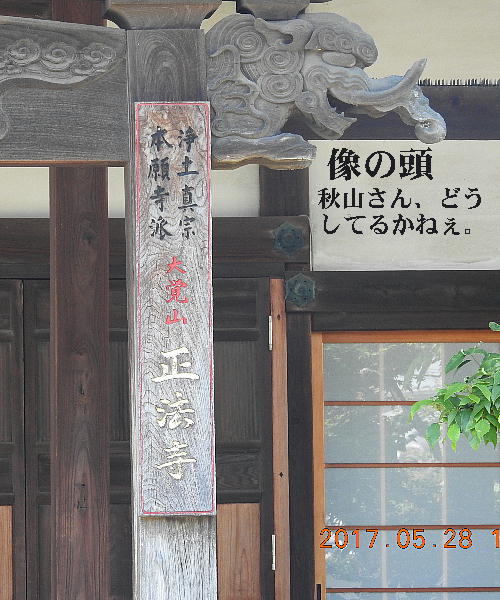 浄土真宗
本願寺派
大覚山
正法寺
像の頭
秋山さん、どう
してるかねぇ。
2017.05.28 1